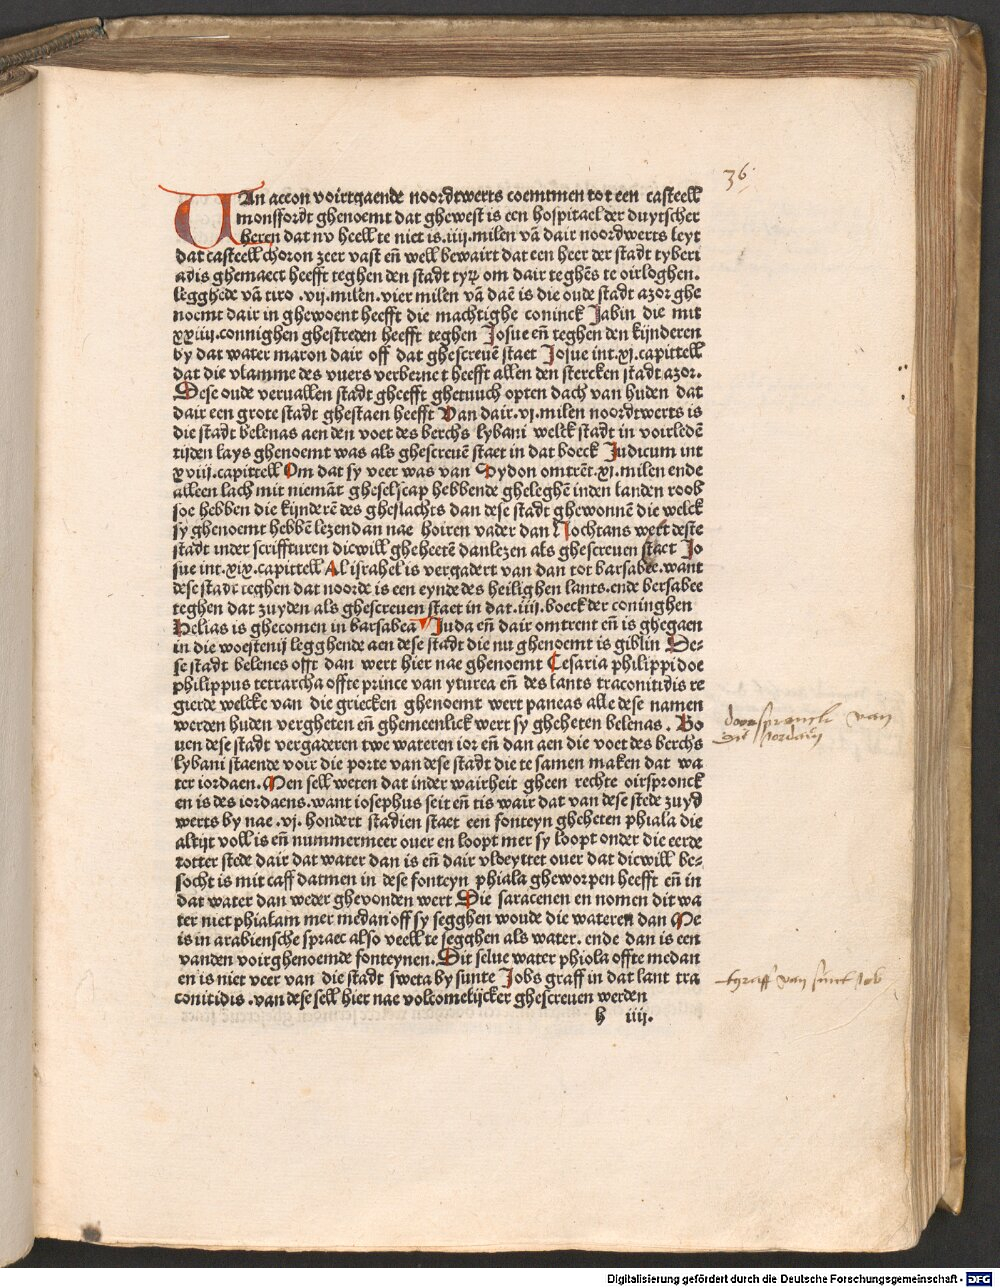 36
VAn accon voirtgaende noordtwerts coemtmen tot een casteell
monsfordt ghenoemt dat ghewest is een hospitael der duytscher
heren dat nv heell te niet is .iiij. milen vā dair noordtwerts leyt
dat casteell choron zeer vast eñ well bewairt dat een heer der stadt tyberi
adis ghemaect heefft teghen den stadt tyrꝰ om dair teghēs te oirloghen.
legghēde vā tiro .vij. milen. vier milen vā daē is die oude stadt azor ghe
noemt dair in ghewoent heefft die machtighe coninck Jabin die mit
xxiiij. connighen ghestreden heefft teghen Josue eñ teghen den kijnderen
by dat water maron dair off dat ghescreuē staet Josue int .xj. capittell
dat die vlamme des vuers verbernet heefft allen den stercken stadt azor.
Dese oude veruallen stadt gheefft ghetuuch opten dach van huden dat
dair een grote stadt ghestaen heefft Van dair .vj. milen noordtwerts is
die stadt belenas aen den voet des berchs lybani welck stadt in voirledē
tijden lays ghenoemt was als ghescreuē staet in dat boeck Judicum int
xviij. capittell Om dat sy veer was van Sydon omtrēt .xj. milen ende
alleen lach mit niemāt gheselscap hebbende gheleghē inden landen roob
soe hebben die kijnderē des gheslachts dan dese stadt ghewonnē die welck
sy ghenoemt hebbē lezendan nae hoiren vader dan Nochtans wert deste
stadt inder scriffturen dicwill gheheetē danlezen als ghescreuen staet Jo
sue int .xix. capittell Al israhel is vergadert van dan tot barsabee. want
dese stadt teghen dat noorde is een eynde des heilighen lants. ende bersabee
teghen dat zuyden als ghescreuen staet in dat .iiij. boeck der coninghen
Helias is ghecomen in barsabea Juda eñ dair omtrent eñ is ghegaen
in die woestenij legghende aen dese stadt die nu ghenoemt is giblin De-
se stadt belenes offt dan wert hier nae ghenoemt Cesaria philippi doe
philippus tetrarcha offte prince van yturea eñ des lants traconitidis re
gierde welcke van die griecken ghenoemt wert paneas alle dese namen
werden huden vergheten eñ ghemeenlick wert sy gheheten belenas. Bo
uen dese stadt vergaderen twe wateren ior eñ dan aen die voet des berchs
lybani staende voir die porte van dese stadt die te samen maken dat wa
ter iordaen. Men sell weten dat inder wairheit gheen rechte oirspronck
en is des iordaens. want iosephus seit eñ tis wair dat van dese stede zuyd
werts by nae .vj. hondert stadien staet een fonteyn gheheten phiala die
altijt voll is eñ nummermeer ouer en loopt mer sy loopt onder die eerde
totter stede dair dat water dan is eñ dair vloeyttet ouer dat dicwill be-
socht is mit caff datmen in dese fonteyn phiala gheworpen heefft eñ in
dat water dan weder ghevonden wert Die saracenen en nomen dit wa
ter niet phialam mer medan off sy segghen woude die wateren dan Me
is in arabiensche spraec also veell te segghen als water. ende dan is een
vanden voirghenoemde fonteynen. Dit selue water phiola offte medan
en is niet veer van die stadt sweta by sunte Jobs graff in dat lant tra
conitidis. van dese sell hier nae volcomelijcker ghescreuen werden
h iiij.
doorspronck van
die Jordaen
tgraff van sinct Job
Digitalisierung gefördert durch die Deutsche Forschungsgemeinschaft - DFG